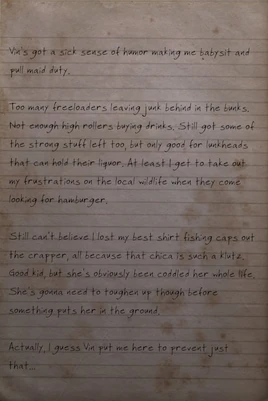 Vin's got a sick sense of humor making me babysit and
pull maid duty.
Too many freeloaders leaving junk behind in the bunks.
Not enough high rollers buying drinks. Still got some of
the strong stuff left too, but only good for lunkheads
that can hold their liquor. At least I get to take out
my frustrations on the local wildlife when they come
looking for hamburger.
Still can't believe I lost my best shirt fishing caps out
the crapper, all because that chica is such a klutz.
Good kid, but she's obviously been coddled her whole life.
She's gonna need to toughen up though before
something puts her in the ground.
Actually, I guess Vin put me here to prevent just
that...